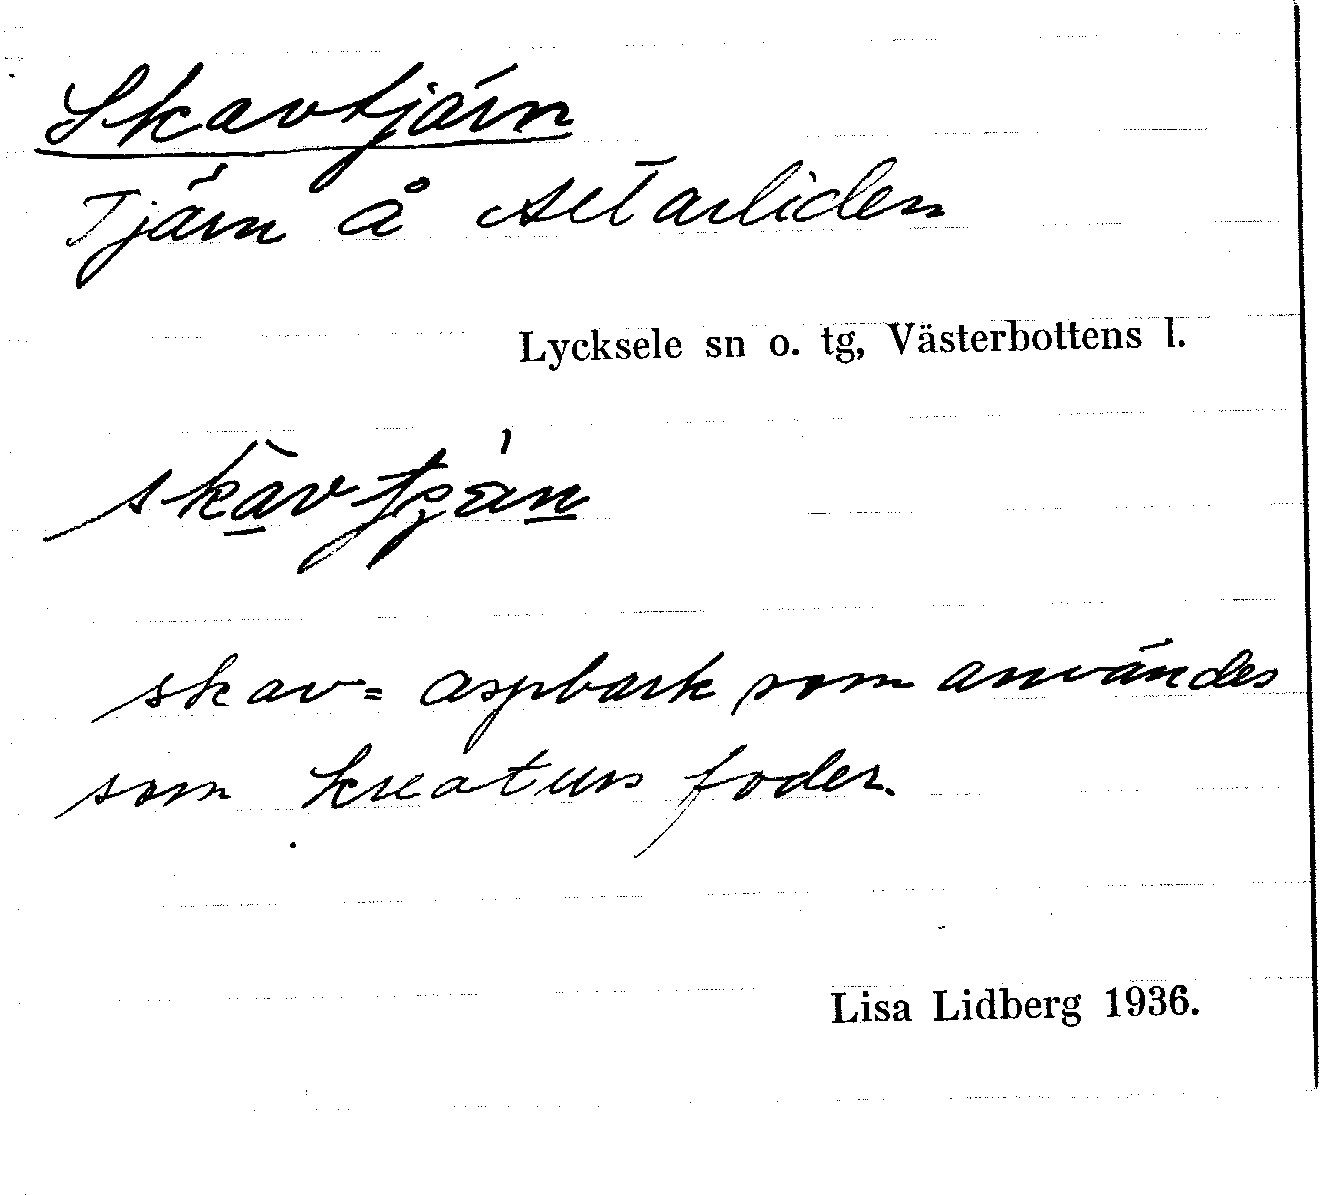 Skavtjärn
Tjärn å Altarliden
Lycksele sn o. tg, Västerbottens l.
skav= aspbark som användes
som kreaturs foder.
Lisa Lidberg 1936.